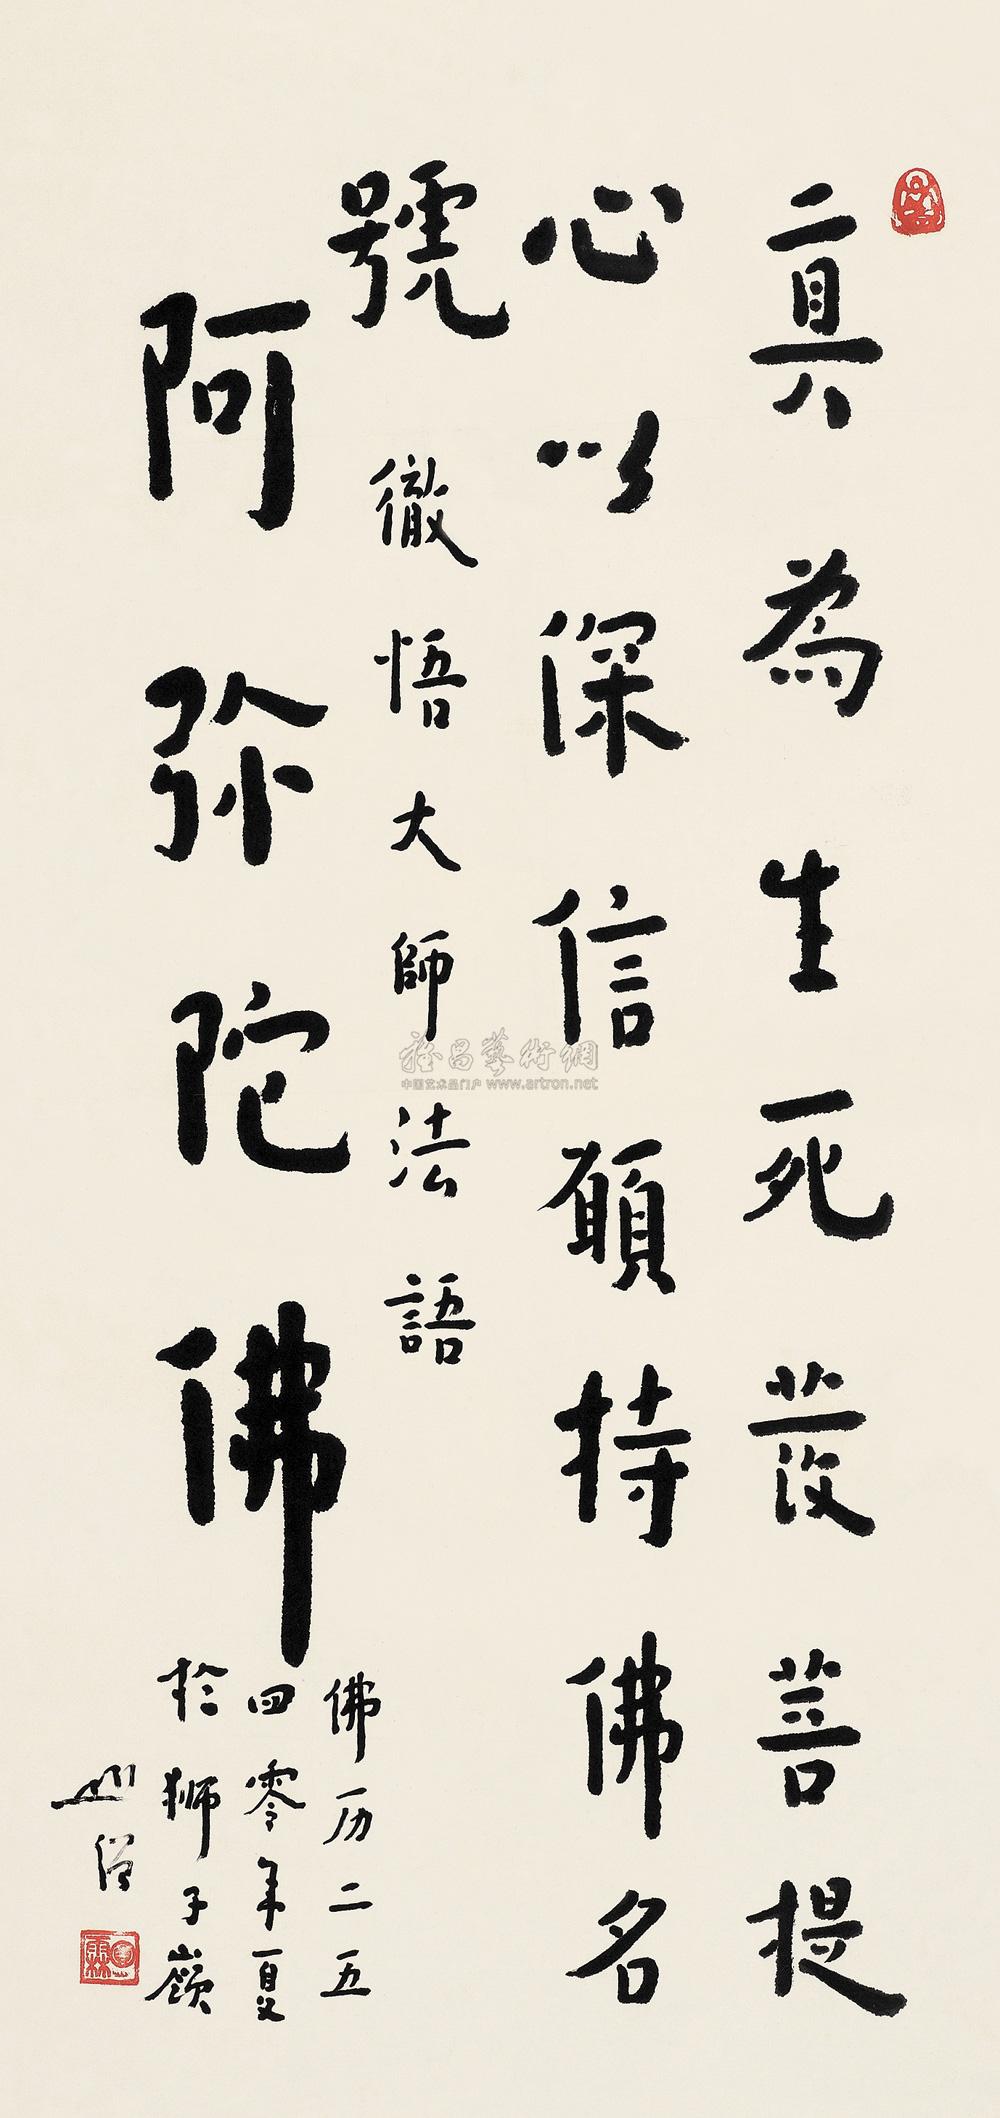 真為生死發菩提
心以深信願持佛名
號
徹悟大師法語
阿弥陀佛
佛历二五
四零年夏
於狮子嶺
雅昌藝術網
中国艺术品门户 www.artron.net